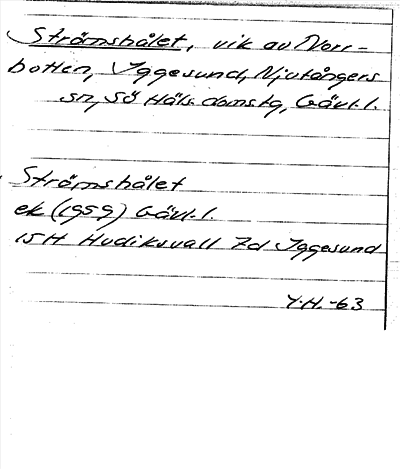 Strömshålet, vik av Norr-
botten, Iggesund, Njutångers
sn, Sö Häls. domstg, Gävl. l.
Strömshålet
ek (1959) Gävl. l.
15H Hudiksvall 7d Iggesund
Y.H. -63